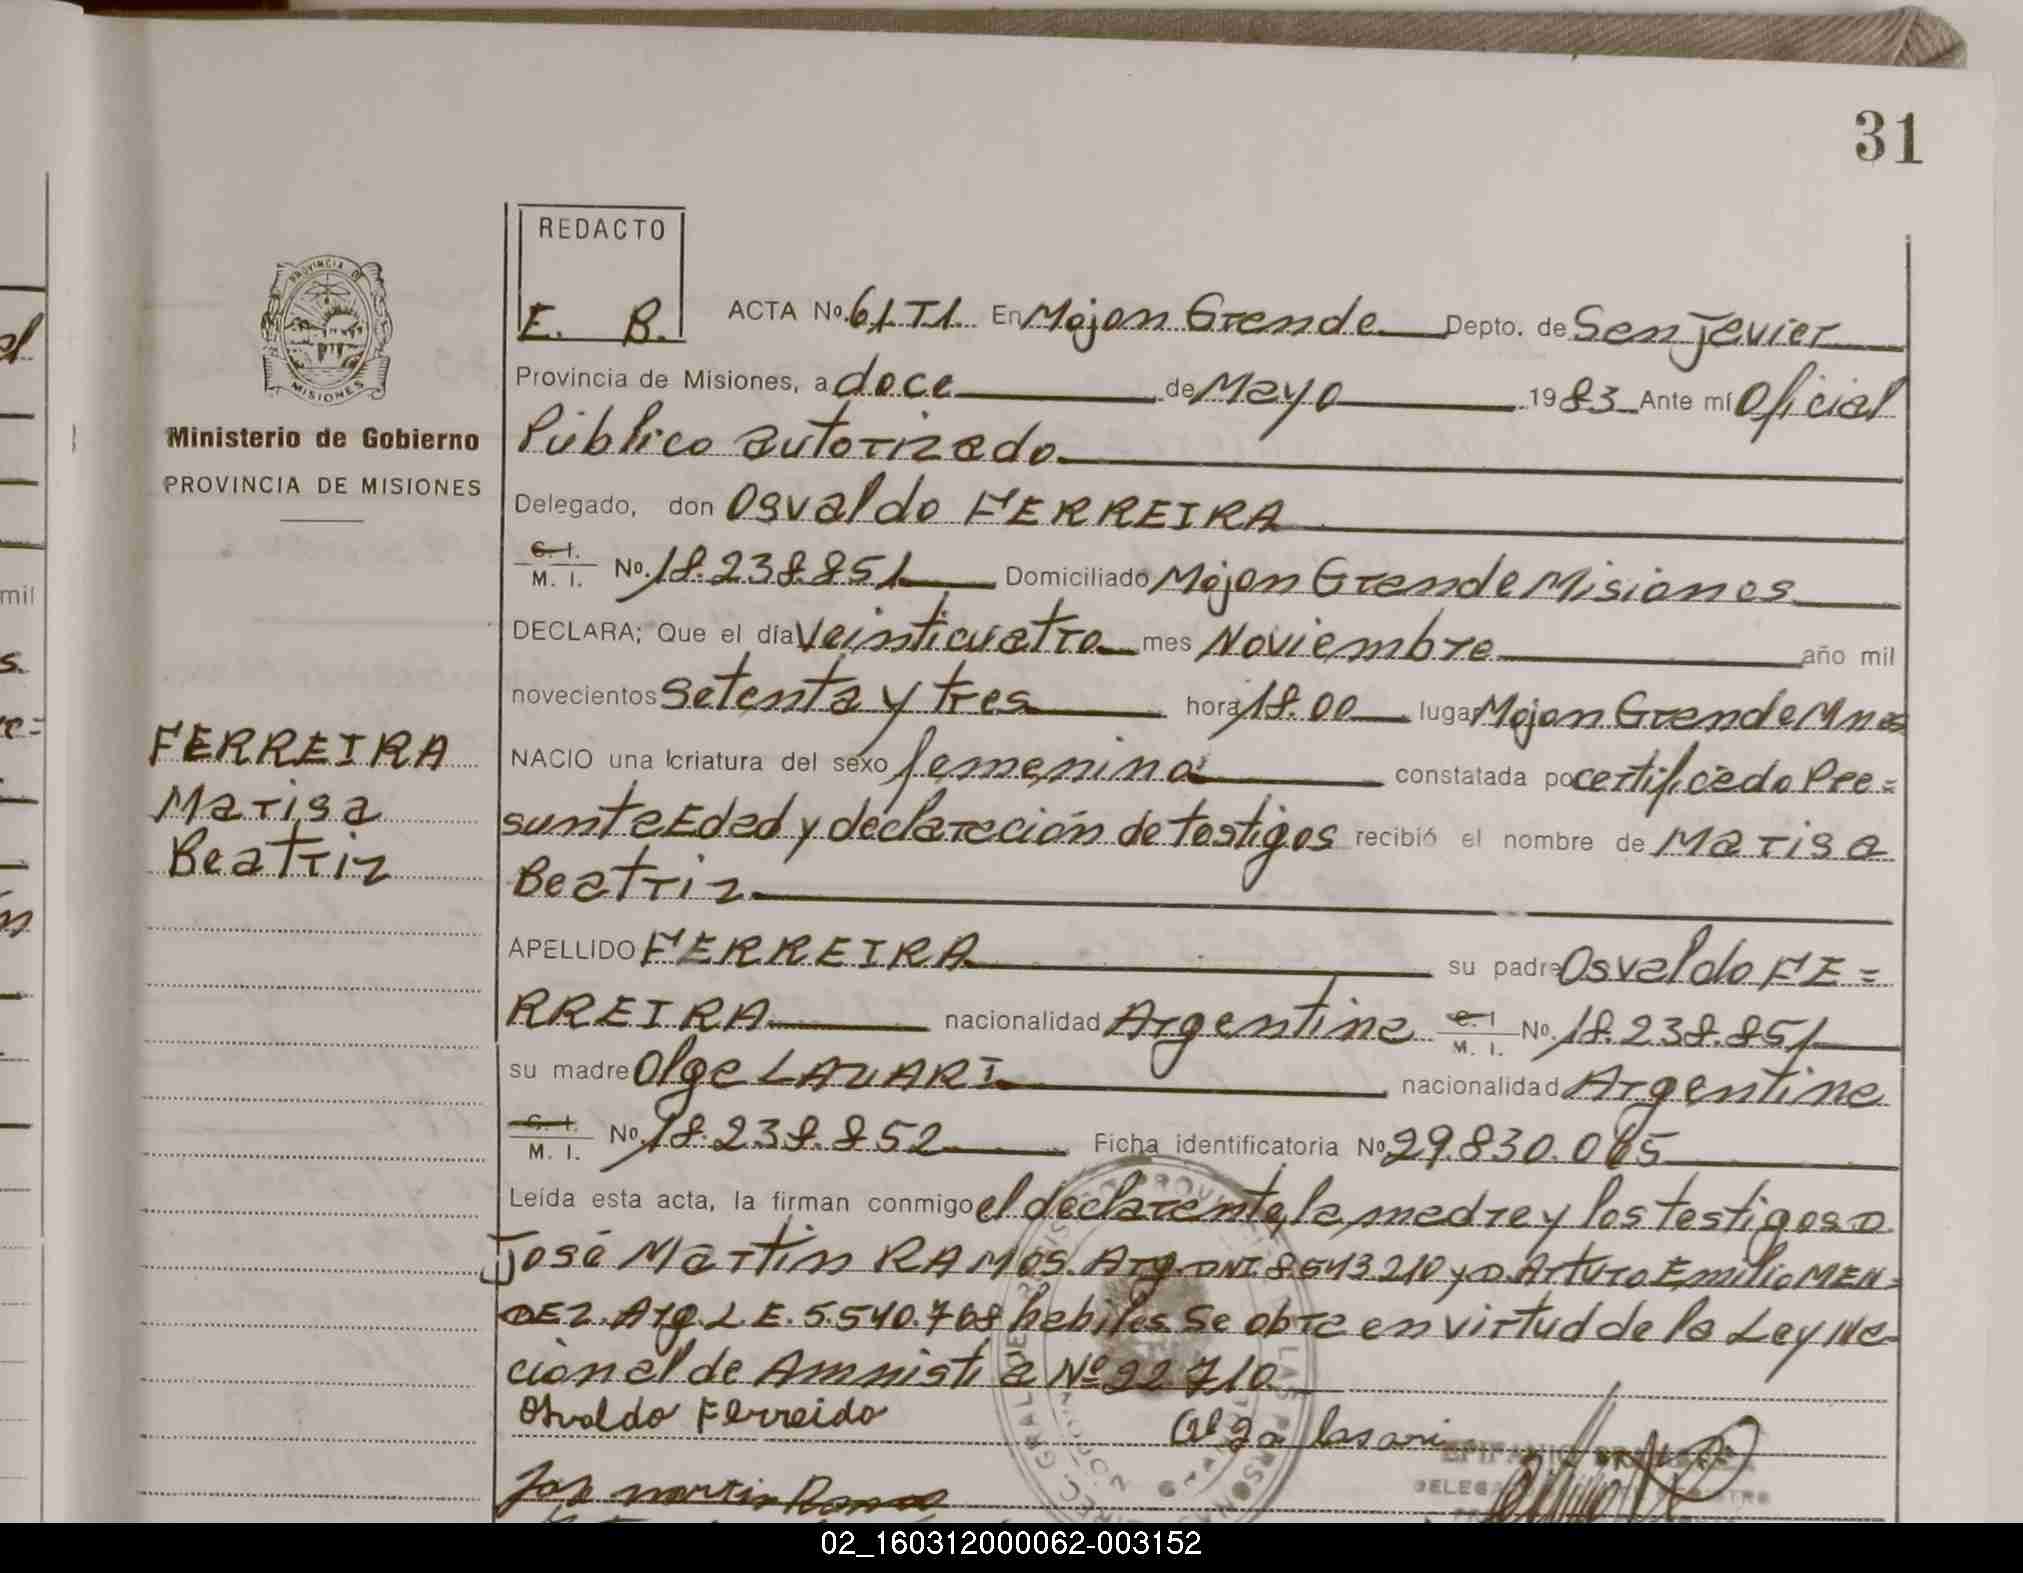 31
REDACTO
E. B.
ACTA No. 61 T1 En Mojon Grande Depto. de San Javier
Provincia de Misiones, a doce de Mayo 1983 Ante mí Oficial
Público autorizado
Delegado, don Osvaldo FERREIRA
C. I. M. I. No. 18.238.851 Domiciliado Mojon Grande Misiones
DECLARA; Que el día Veinticuatro mes Noviembre año mil
novecientos Setenta y tres hora 18.00 lugar Mojon Grande Mnes
NACIO una criatura del sexo femenino constatada por certificado Pre=
sunta Edad y declaración de testigos recibió el nombre de Marisa
Beatriz
APELLIDO FERREIRA su padre Osvaldo FE=
RREIRA nacionalidad Argentina C. I. M. I. No. 18.238.851
su madre Olga LAZARI nacionalidad Argentina
C. I. M. I. No. 18.238.852 Ficha identificatoria No 29.830.065
Leída esta acta, la firman conmigo el declarante, la madre y los testigos D.
José Martin RAMOS. Arg. DNI. 8.543210 y D. Arturo Emilio MEN=
DEZ. Arg. L.E. 5.540.768 habiles. Se obra en virtud de la Ley Na-
cional de Amnistia Nº 22710
Osvaldo Ferreido
Olga lasari
Jose martin Ramos
PROVINCIA DE
MISIONES
Ministerio de Gobierno
PROVINCIA DE MISIONES
FERREIRA
Marisa
Beatriz
mil
s.
02_160312000062-003152